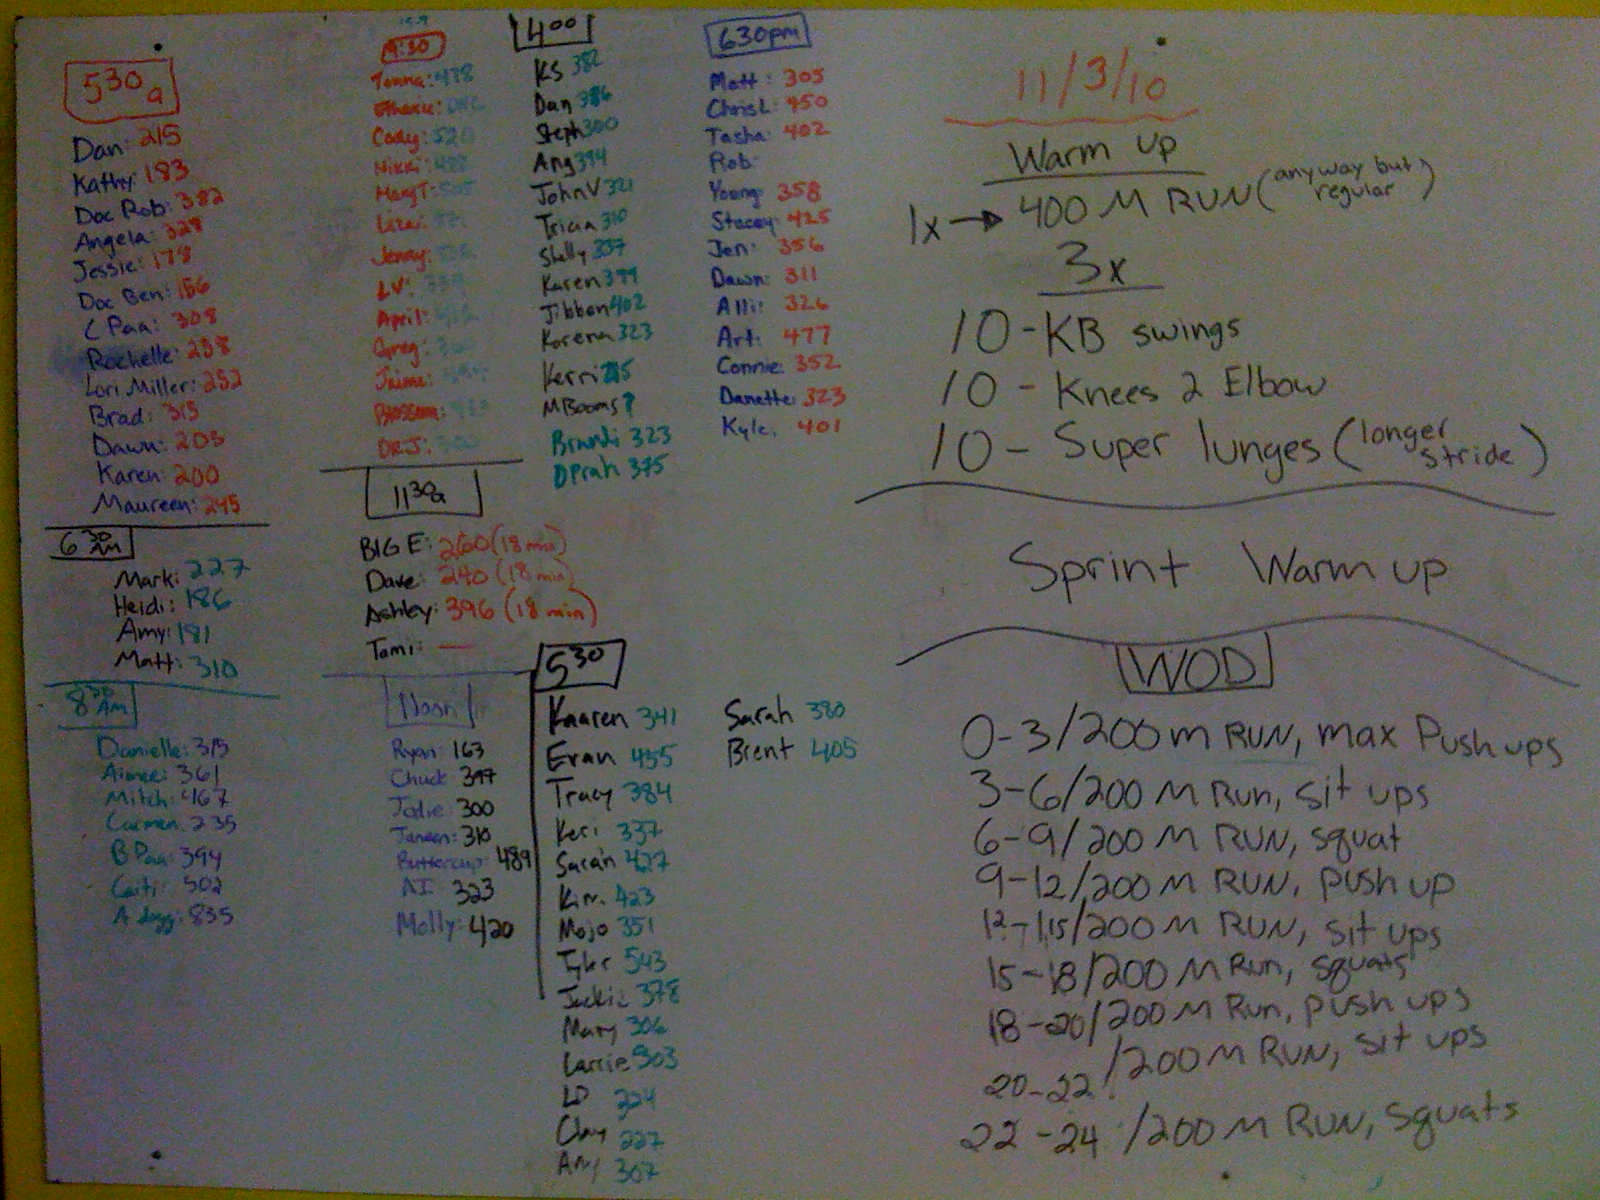 530a
Dan: 215
Kathy: 183
Doc Rob: 382
Angela: 328
Jessie: 178
Doc Ben: 156
C Paa: 308
Rochelle: 238
Lori Miller: 252
Brad: 315
Dawn: 203
Karen: 200
Maureen: 245
630 AM
Mark: 227
Heidi: 186
Amy: 181
Matt: 310
830 AM
Danielle: 315
Aimee: 361
Mitch: 467
Carmen: 235
B Paa: 394
Caiti: 502
A dogg: 835
9:30
Cody: 520
Nikki:
Mary T:
Jenny:
LV:
April:
Greg:
Jaime:
Blossom:
DR.J: 300
1130a
BIG E: 260 (18 min)
Dave: 240 (18 min)
Ashley: 396 (18 min)
Tami: —
Noon
Ryan: 163
Chuck: 397
Jodie: 300
Janeen: 310
Buttercup: 489
AI: 323
Molly: 420
400
KS 382
Dan 386
Steph 300
Ang 394
John V 321
Tricia 310
Shelly 337
Karen 399
Jibben 402
Korena 323
Kerri
M Booms ?
Brandi 323
Oprah 375
530
Kaaren 341
Evan 455
Tracy 384
Keri 337
Sarah 427
Kim 423
Mojo 351
Tyler 543
Jackie 378
Mary 306
Larrie 303
LD 224
Clay 227
Amy 307
Sarah 380
Brent 405
630pm
Matt: 305
Chris L: 450
Tasha: 402
Rob:
Young: 358
Stacey: 425
Jen: 356
Dawn: 311
Alli: 326
Art: 477
Connie: 352
Danette: 323
Kyle: 401
11/3/10
Warm up
1x → 400 M RUN (anyway but regular)
3x
10 - KB swings
10 - Knees 2 Elbow
10 - Super lunges (longer stride)
Sprint Warm up
WOD
0-3/200 m RUN, max Push ups
3-6/200 M Run, sit ups
6-9/200 M RUN, squat
9-12/200 M RUN, push up
12-15/200 M RUN, sit ups
15-18/200 M Run, squats
18-20/200 M Run, push ups
20-22/200 M RUN, sit ups
22-24/200 M RUN, squats